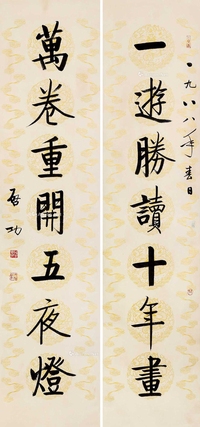 一遊勝讀十年畫
一九八八年春日
萬卷重開五夜燈
啓功